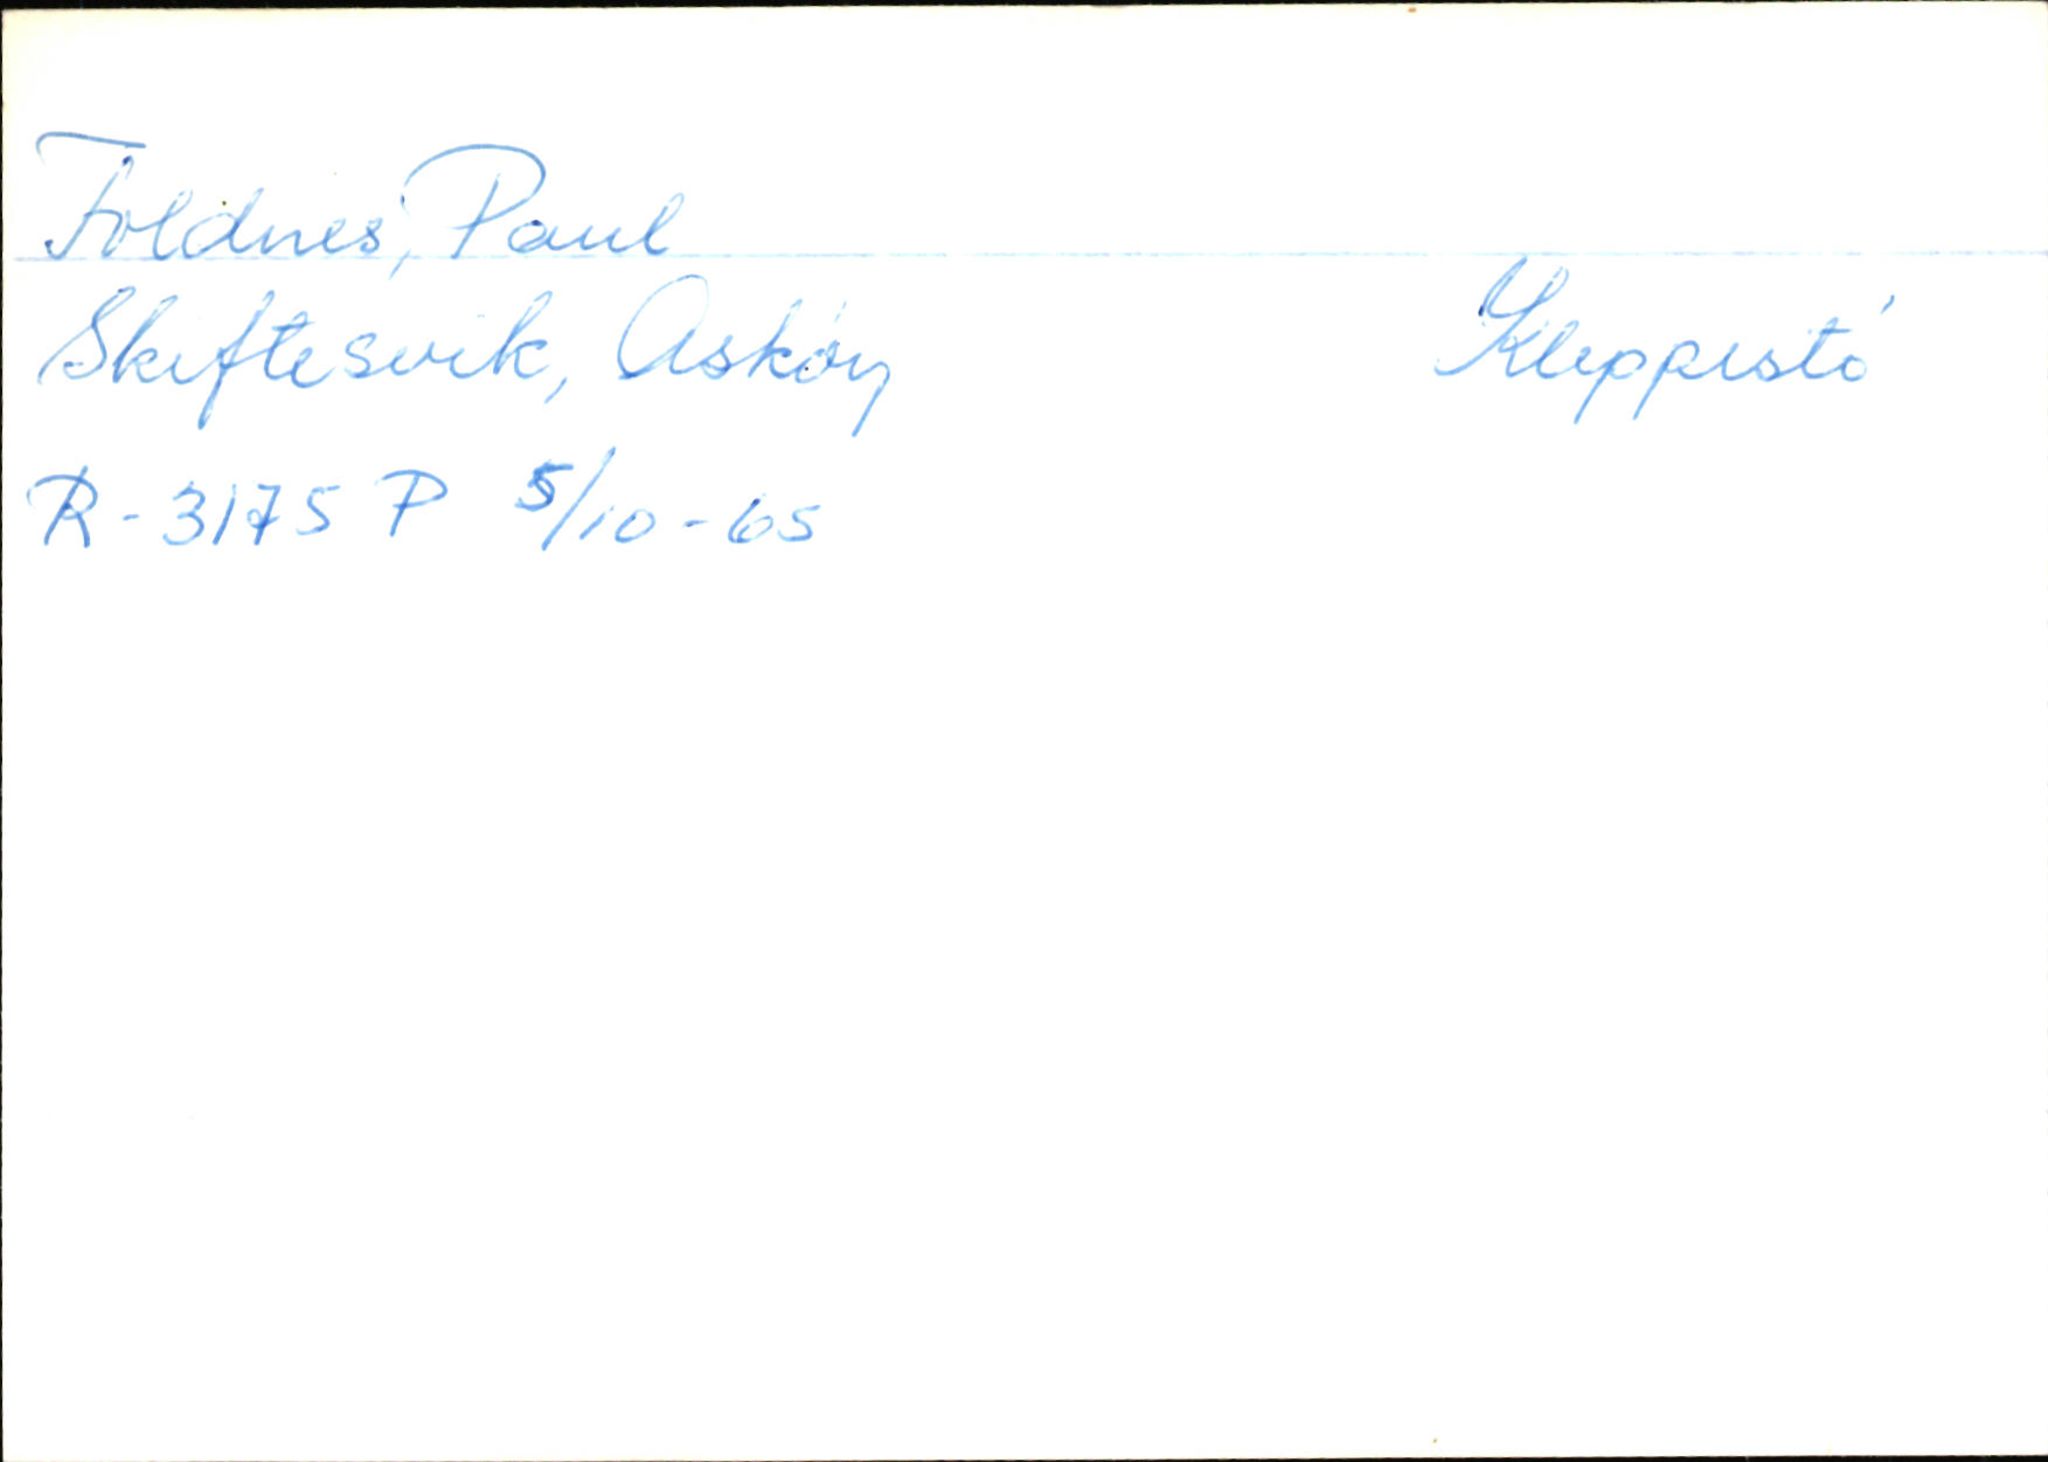 Foldnes, Paul
Skiftesvik, Askóy Kleppestó
R-3175 P 5/10-65